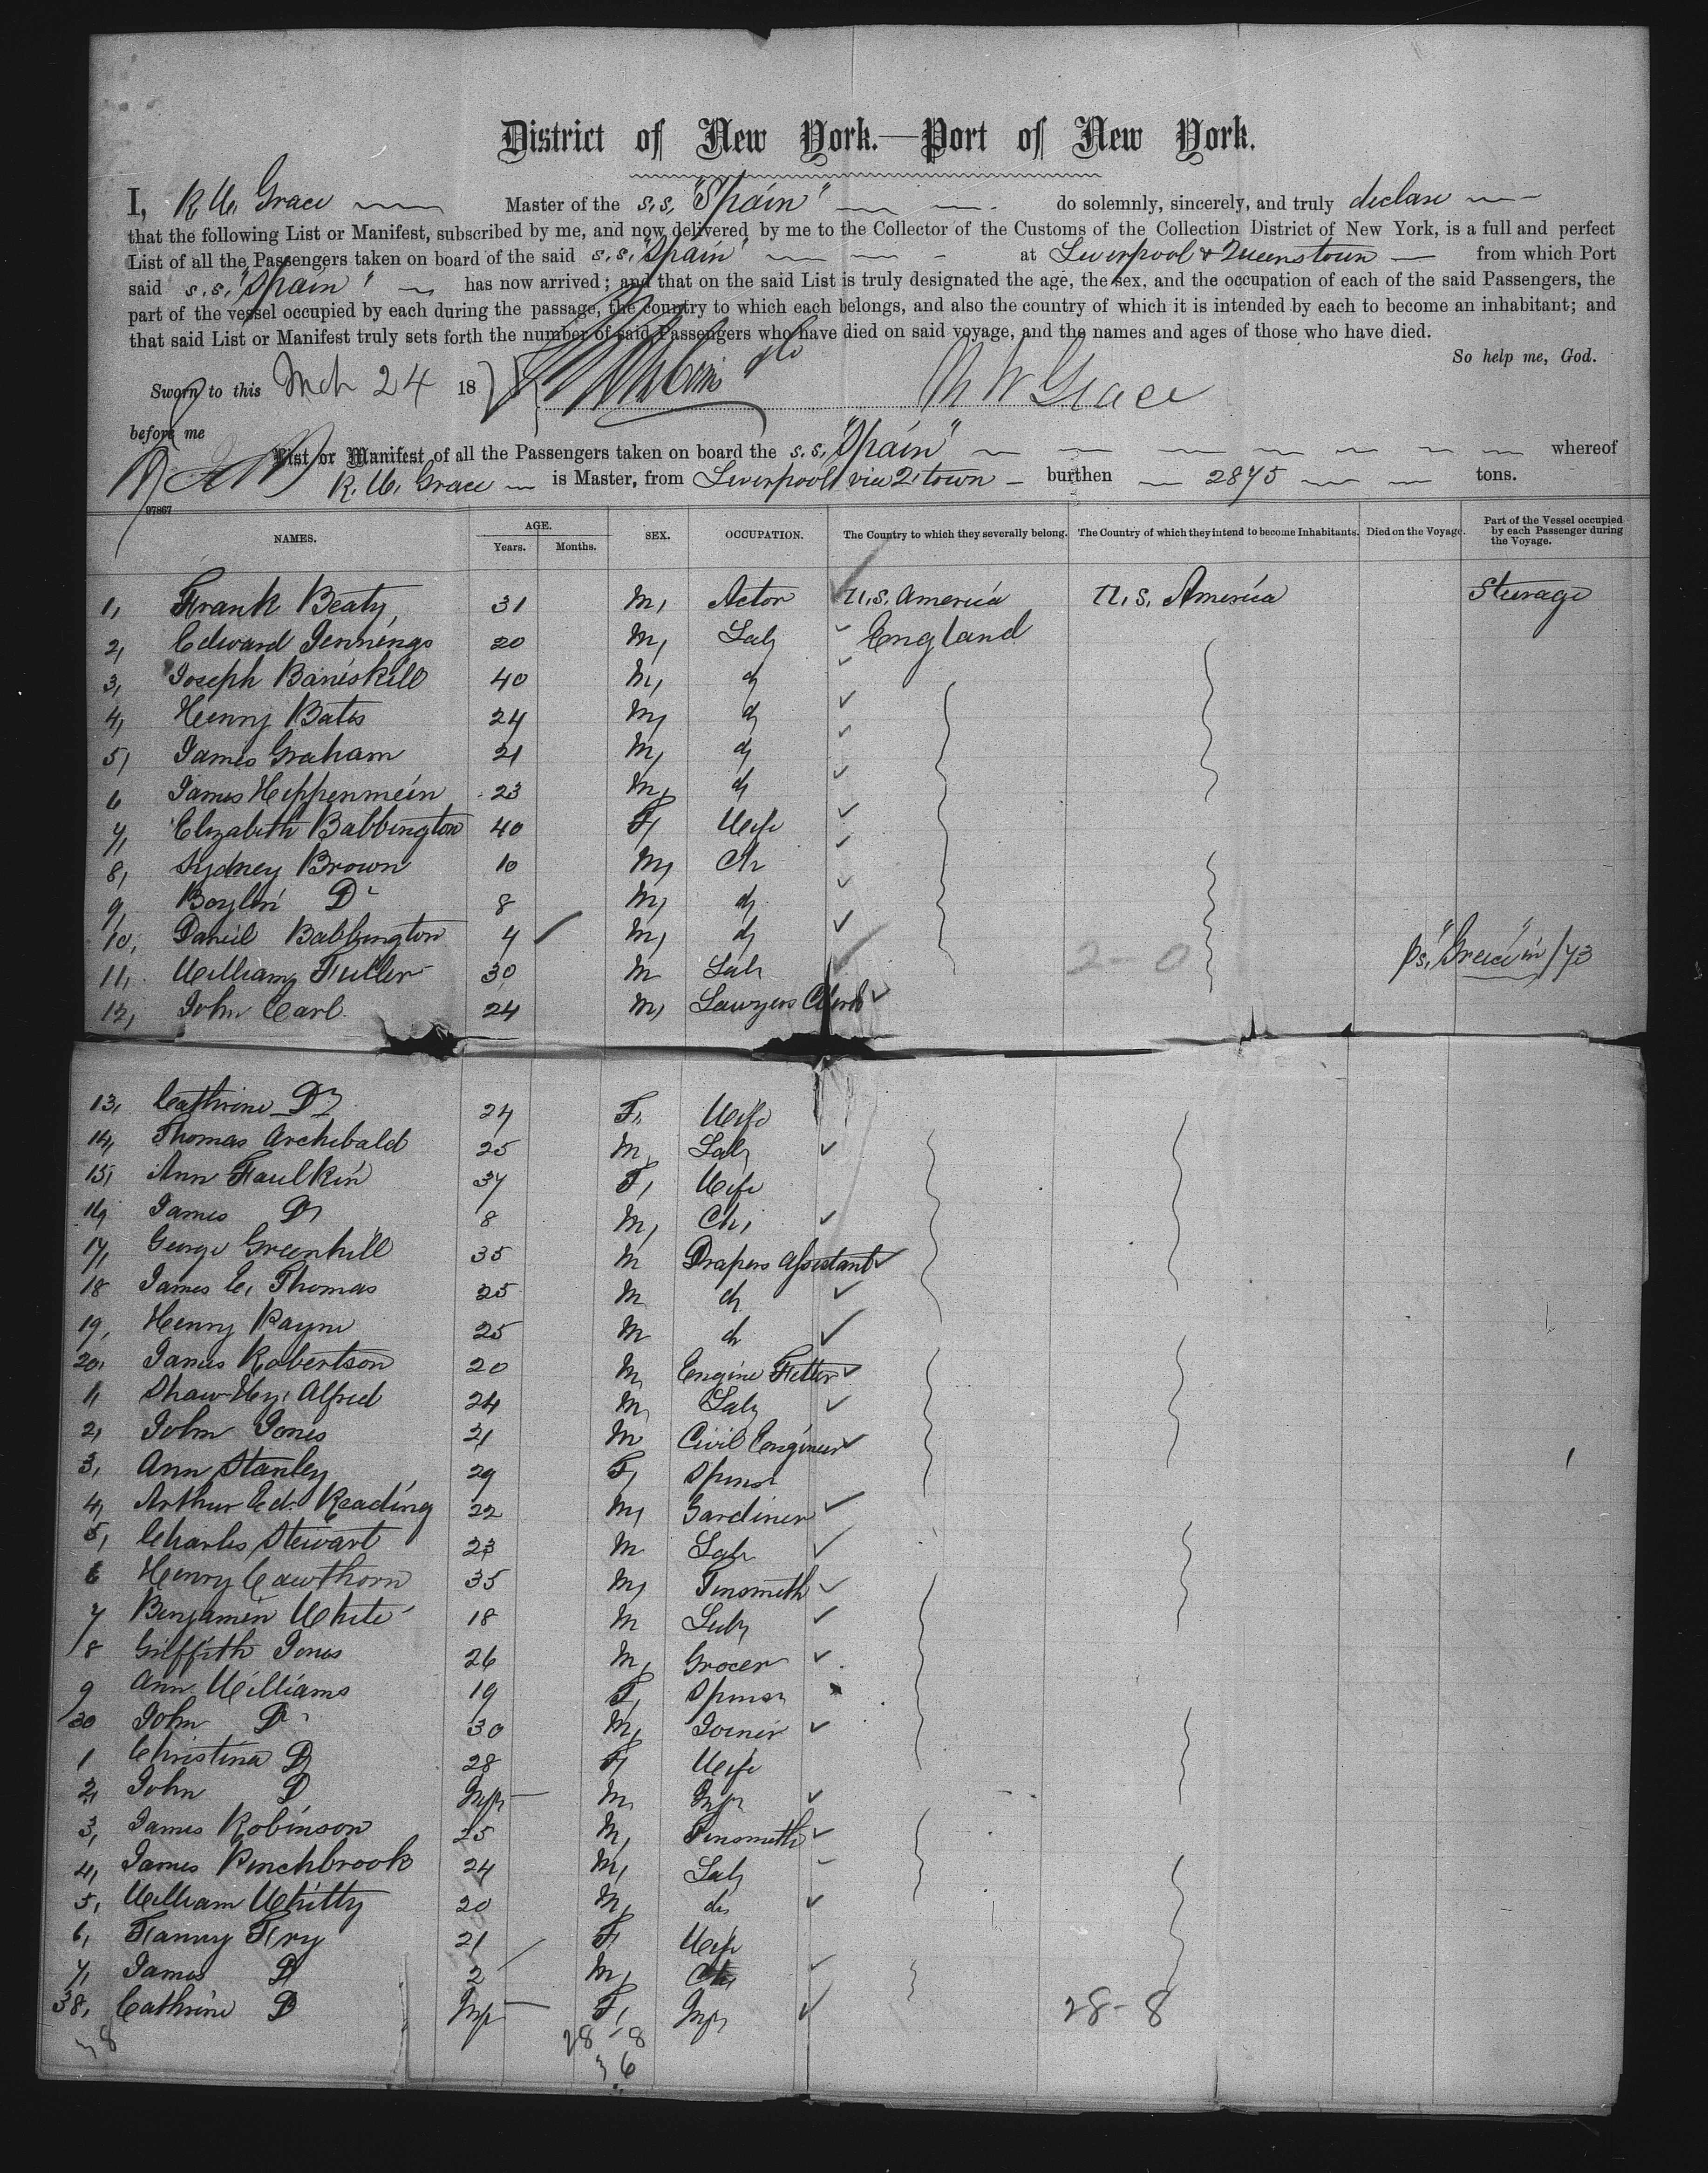 District of New York.—Port of New York.
I, R. W. Grace Master of the s.s. "Spain" do solemnly, sincerely, and truly declare
that the following List or Manifest, subscribed by me, and now delivered by me to the Collector of the Customs of the Collection District of New York, is a full and perfect
List of all the Passengers taken on board of the said s.s. "Spain" at Liverpool & Queenstown from which Port
said s.s. "Spain" has now arrived; and that on the said List is truly designated the age, the sex, and the occupation of each of the said Passengers, the
part of the vessel occupied by each during the passage, the country to which each belongs, and also the country of which it is intended by each to become an inhabitant; and
that said List or Manifest truly sets forth the number of said Passengers who have died on said voyage, and the names and ages of those who have died.
So help me, God.
Sworn to this Mch 24 18 R W Grace
before me
List or Manifest of all the Passengers taken on board the s.s. "Spain" whereof
R. W. Grace is Master, from Liverpool via Q'town burthen 2875 tons.
97867
NAMES. AGE. Years. Months. SEX. OCCUPATION. The Country to which they severally belong. The Country of which they intend to become Inhabitants. Died on the Voyage. Part of the Vessel occupied by each Passenger during the Voyage.
1, Frank Beaty, 31 M, Actor U.S. America U.S. America Steerage
2, Edward Jennings 20 M, Labr England
3, Joseph Baniskill 40 M, do
4, Henry Bates 24 M, do
5, James Graham 21 M, do
6 James Heppenmein 23 M, do
7, Elizabeth Babbington 40 F, Wife
8, Sydney Brown 10 M, Ch
9, Boylin Do 8 M, do
10, Daniel Babbington 4 M, do
11, William Fuller 30 M Labr 2-0 ps. "Greece" in /73
12, John Carl 24 M, Lawyers Clerk
13, Cathrine Do 24 F, Wife
14, Thomas Archibald 25 M, Labr
15, Ann Faulkin 37 F, Wife
16, James Do 8 M, Ch,
17, George Greenhill 35 M Drapers Assistant
18 James E. Thomas 25 M do
19, Henry Payne 25 M do
20, James Robertson 20 M, Engine Fitter
1, Shaw Hy. Alfred 24 M, Labr
2, John Jones 21 M Civil Engineer
3, Ann Stanley 29 F, Spinsr
4, Arthur Ed. Reading 22 M, Gardiner
5, Charles Stewart 23 M Labr
6 Henry Cawthorn 35 M, Tinsmith
7 Benjamin White 18 M Labr
8 Griffith Jones 26 M, Grocer
9 Ann Williams 19 F, Spinsr
30 John Do 30 M, Joiner
1 Christina Do 28 F, Wife
2, John Do Inft M, Inft
3, James Robinson 25 M, Tinsmith
4, James Pinchbrook 24 M, Labr
5, William Whitty 20 M, do
6, Fanny Fry 21 F Wife
7, James Do 2 M, Ch,
38, Cathrine Do Inft F, Inft 28-8
38 28-8
36